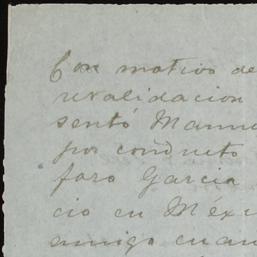 Con motivo de
revalidacion
sentó Manu
por conducto
faro Garcia
cio en Méxi
amigo cuan